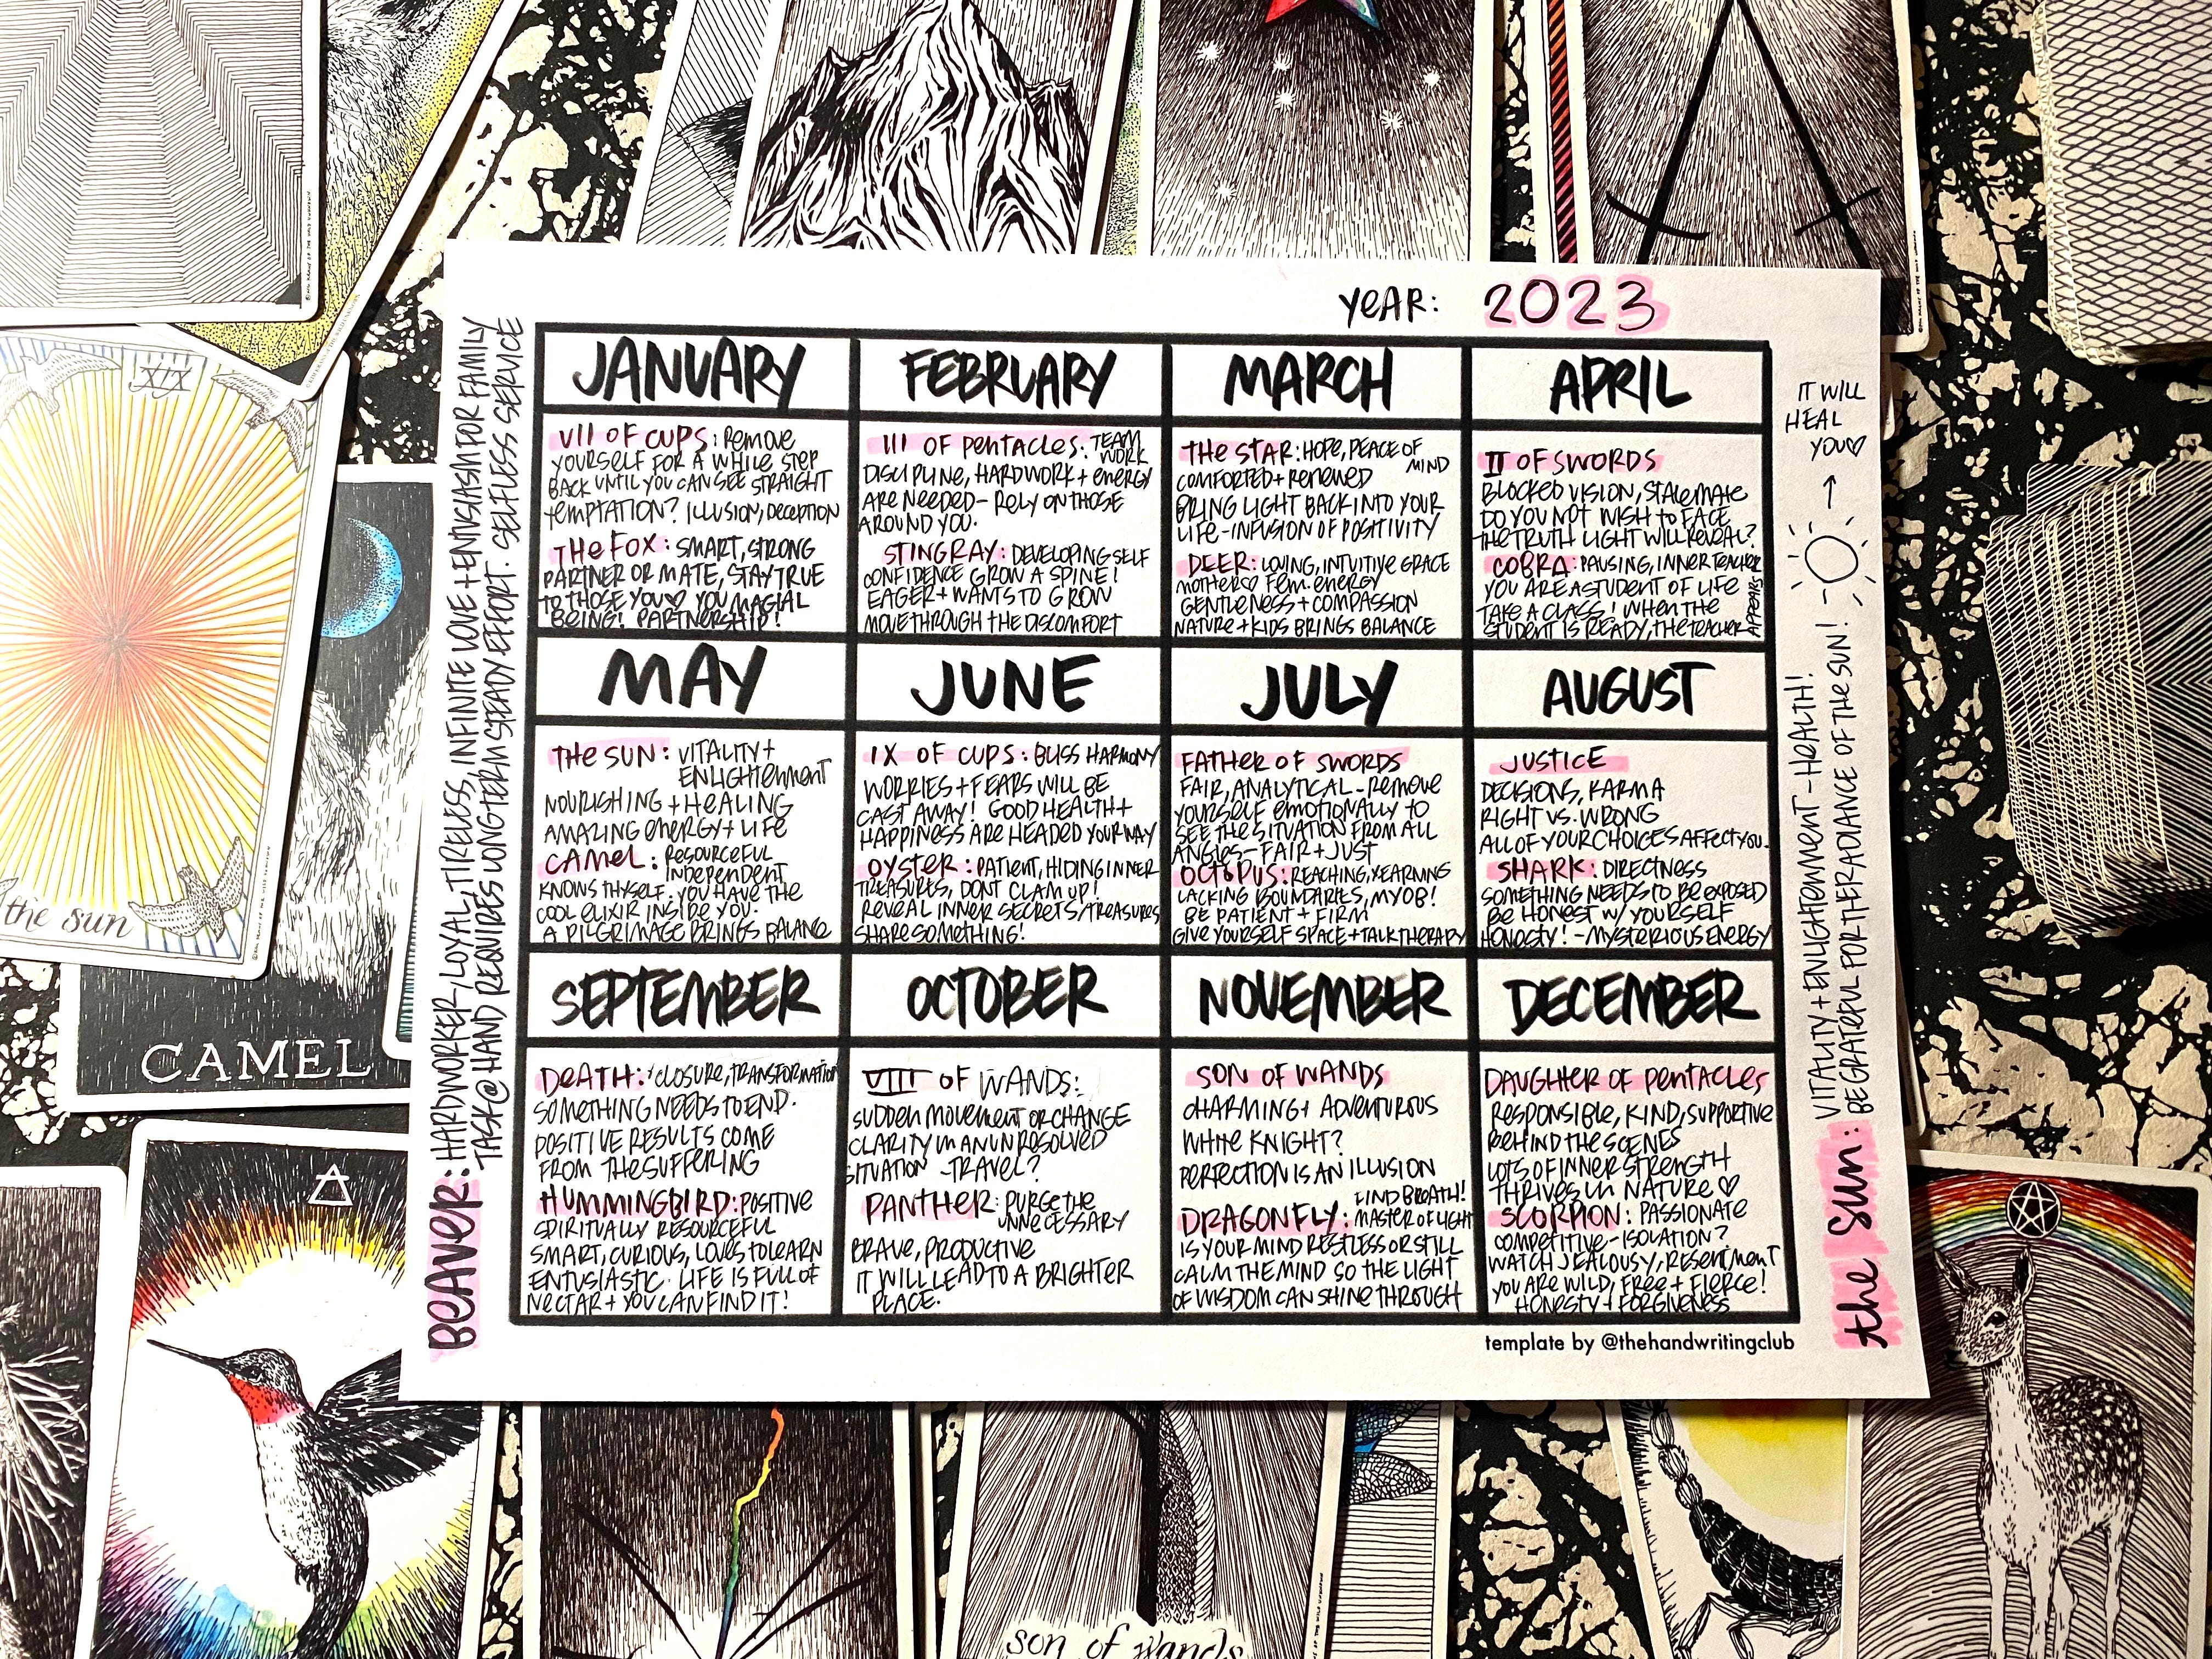 YEAR: 2023
JANUARY
VII OF CUPS: REMOVE
YOURSELF FOR A WHILE STEP
BACK UNTIL YOU CAN SEE STRAIGHT
TEMPTATION? ILLUSION, DECEPTION
THE FOX: SMART, STRONG
PARTNER OR MATE, STAY TRUE
TO THOSE YOU ♡ YOU MAGIAL
BEING! PARTNERSHIP!
FEBRUARY
III OF PENTACLES: TEAM
WORK
DISCIPLINE, HARDWORK + ENERGY
ARE NEEDED - RELY ON THOSE
AROUND YOU.
STINGRAY: DEVELOPING SELF
CONFIDENCE GROW A SPINE!
EAGER + WANTS TO GROW
MOVE THROUGH THE DISCOMFORT
MARCH
THE STAR: HOPE, PEACE OF
MIND
COMFORTED + RENEWED
BRING LIGHT BACK INTO YOUR
LIFE - INFUSION OF POSITIVITY
DEER: LOVING, INTUITIVE GRACE
MOTHERS ♡ FEM. ENERGY
GENTLENESS + COMPASSION
NATURE + KIDS BRINGS BALANCE
APRIL
II OF SWORDS
BLOCKED VISION, STALEMATE
DO YOU NOT WISH TO FACE
THE TRUTH LIGHT WILL REVEAL?
COBRA: PAUSING, INNER TEACHER
YOU ARE A STUDENT OF LIFE
TAKE A CLASS! WHEN THE
STUDENT IS READY, THE TEACHER
APPEARS
MAY
THE SUN: VITALITY +
ENLIGHTENMENT
NOURISHING + HEALING
AMAZING ENERGY + LIFE
CAMEL: RESOURCEFUL
INDEPENDENT
KNOWS THYSELF. YOU HAVE THE
COOL ELIXIR INSIDE YOU.
A PILGRIMAGE BRINGS BALANCE
JUNE
IX OF CUPS: BLISS HARMONY
WORRIES + FEARS WILL BE
CAST AWAY! GOOD HEALTH +
HAPPINESS ARE HEADED YOUR WAY
OYSTER: PATIENT, HIDING INNER
TREASURES, DONT CLAM UP!
REVEAL INNER SECRETS/TREASURES
SHARE SOMETHING!
JULY
FATHER OF SWORDS
FAIR, ANALYTICAL - REMOVE
YOURSELF EMOTIONALLY TO
SEE THE SITUATION FROM ALL
ANGLES - FAIR + JUST
OCTOPUS: REACHING, YEARNING
LACKING BOUNDARIES, MYOB!
BE PATIENT + FIRM
GIVE YOURSELF SPACE + TALK THERAPY
AUGUST
JUSTICE
DECISIONS, KARMA
RIGHT VS. WRONG
ALL OF YOUR CHOICES AFFECT YOU.
SHARK: DIRECTNESS
SOMETHING NEEDS TO BE EXPOSED
BE HONEST W/ YOURSELF
HONESTY! - MYSTERIOUS ENERGY
SEPTEMBER
DEATH: CLOSURE, TRANSFORMATION
SOMETHING NEEDS TO END.
POSITIVE RESULTS COME
FROM THE SUFFERING
HUMMINGBIRD: POSITIVE
SPIRITUALLY RESOURCEFUL
SMART, CURIOUS, LOVES TO LEARN
ENTUSIASTIC. LIFE IS FULL OF
NECTAR + YOU CAN FIND IT!
OCTOBER
VIII OF WANDS:
SUDDEN MOVEMENT OR CHANGE
CLARITY IN AN UNRESOLVED
SITUATION - TRAVEL?
PANTHER: PURGE THE
UNNECESSARY
BRAVE, PRODUCTIVE
IT WILL LEAD TO A BRIGHTER
PLACE.
NOVEMBER
SON OF WANDS
CHARMING + ADVENTUROUS
WHITE KNIGHT?
PERFECTION IS AN ILLUSION
FIND BREATH!
DRAGONFLY: MASTER OF LIGHT
IS YOUR MIND RESTLESS OR STILL
CALM THE MIND SO THE LIGHT
OF WISDOM CAN SHINE THROUGH
DECEMBER
DAUGHTER OF PENTACLES
RESPONSIBLE, KIND, SUPPORTIVE
BEHIND THE SCENES
LOTS OF INNER STRENGTH
THRIVES IN NATURE ♡
SCORPION: PASSIONATE
COMPETITIVE - ISOLATION?
WATCH JEALOUSY, RESENTMENT
YOU ARE WILD, FREE + FIERCE!
HONESTY + FORGIVENESS
BEAVER: HARDWORKER, LOYAL, TIRELESS, INFINITE LOVE + ENTUSIASM FOR FAMILY
TASK @ HAND REQUIRES LONG TERM STEADY EFFORT. SELFLESS SERVICE
the SUN: VITALITY + ENLIGHTENMENT - HEALTH!
BE GRATEFUL FOR THE RADIANCE OF THE SUN!
IT WILL
HEAL
YOU ♡
template by @thehandwritingclub
XIX
the sun
CAMEL
son of wands